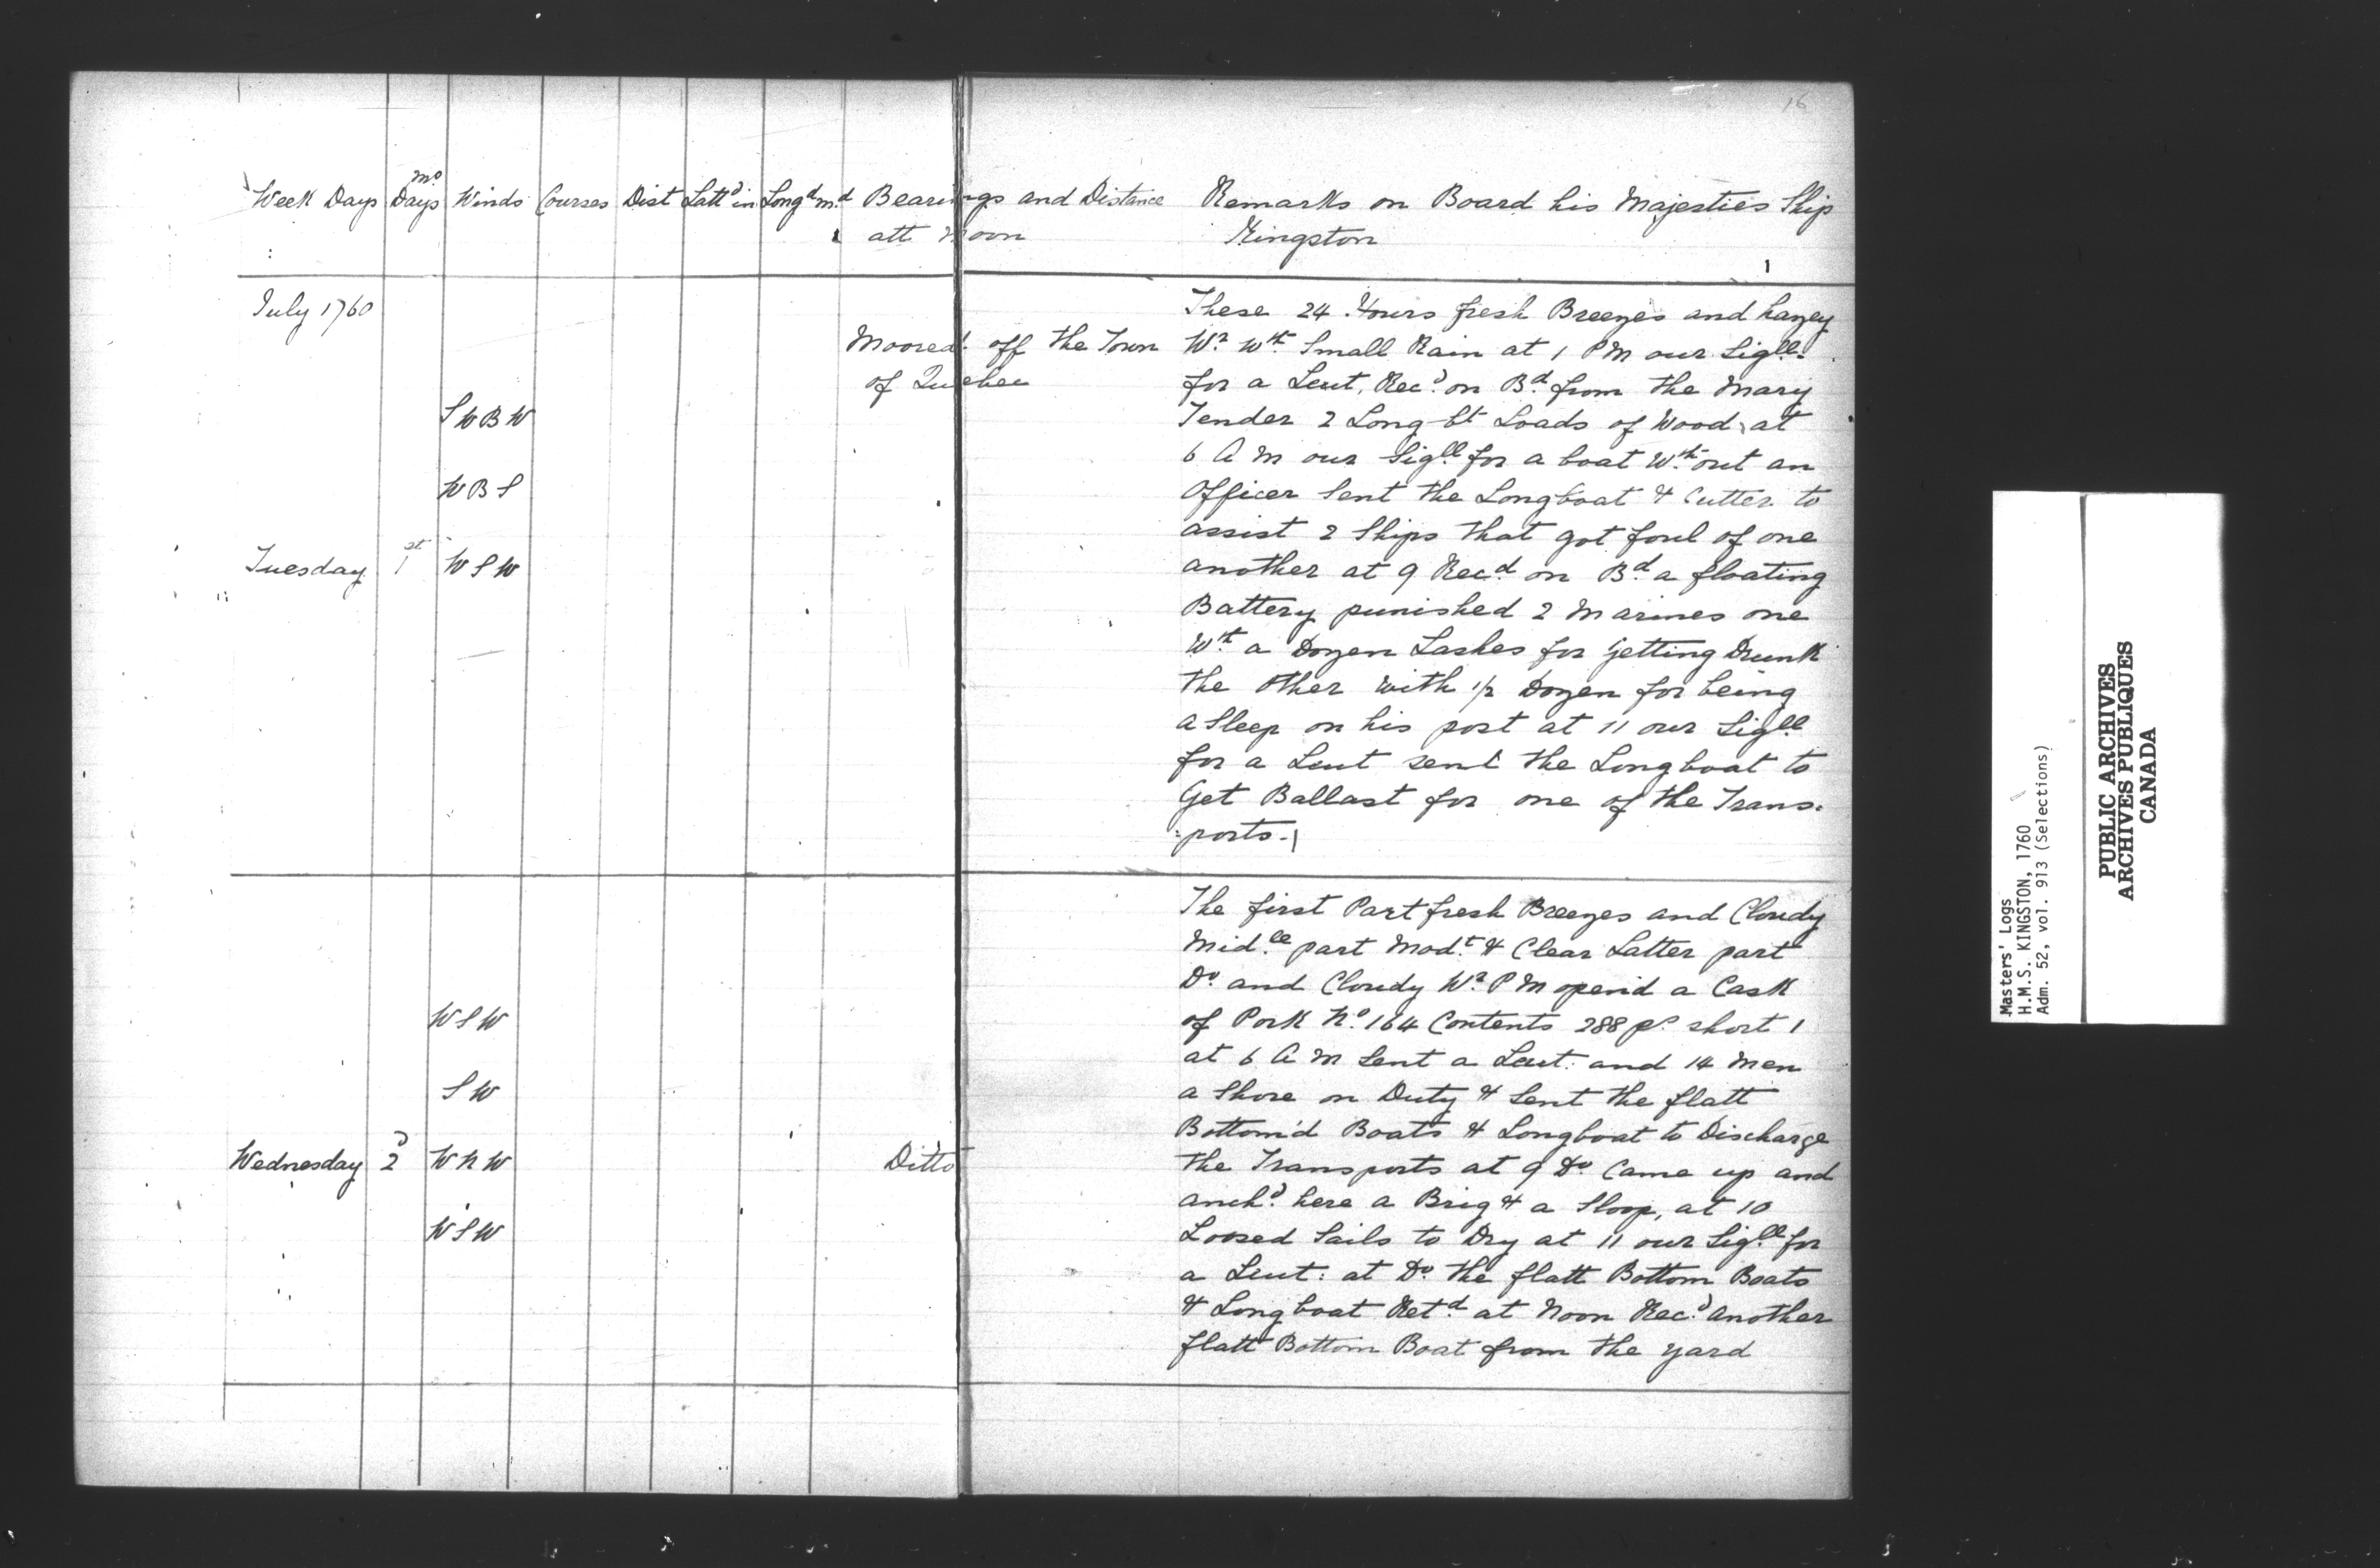 16
Week Days | mo Days | Winds | Courses | Dist | Lattd in | Longd md | Bearings and Distance att Noon | Remarks on Board his Majesties Ship
Kingston
July 1760
Moored off the Town
of Quebec
SWBW
WBS
Tuesday 1st WSW
These 24 Hours fresh Breezes and hazey
Wr. wth. Small Rain at 1 PM our Sigll.
for a Leut, Recd. on Bd. from the Mary
Tender 2 Long-bt Loads of Wood, at
6 AM our Sigll for a boat Wth.out an
Officer Sent the Longboat & Cutter to
assist 2 Ships that got foul of one
another at 9 Recd. on Bd. a floating
Battery punished 2 Marines one
Wth a Dozen Lashes for Getting Drunk
the Other with 1/2 Dozen for being
a Sleep on his post at 11 our Sigll
for a Leut sent the Longboat to
Get Ballast for one of the Trans=
=ports.
WSW
SW
Wednesday 2d WNW Ditto
WSW
The first Part fresh Breezes and Cloudy
Midll. part Modt. & Clear Latter part
Do. and Cloudy Wr. PM opend a Cask
of Pork No. 164 Contents 288 ps. short 1
at 6 AM Sent a Leut: and 14 Men
a Shore on Duty & Sent the flatt
Bottom'd Boats & Longboat to Discharge
the Transports at 9 Do. Came up and
anchd. here a Brig & a Sloop, at 10
Loosed Sails to Dry at 11 our Sigll. for
a Leut: at Do. the flatt Bottom Boats
& Longboat Retd at Noon Recd. another
flatt Bottom Boat from the yard
Masters' Logs
H.M.S. KINGSTON, 1760
Adm. 52, vol. 913 (Selections)
PUBLIC ARCHIVES
ARCHIVES PUBLIQUES
CANADA